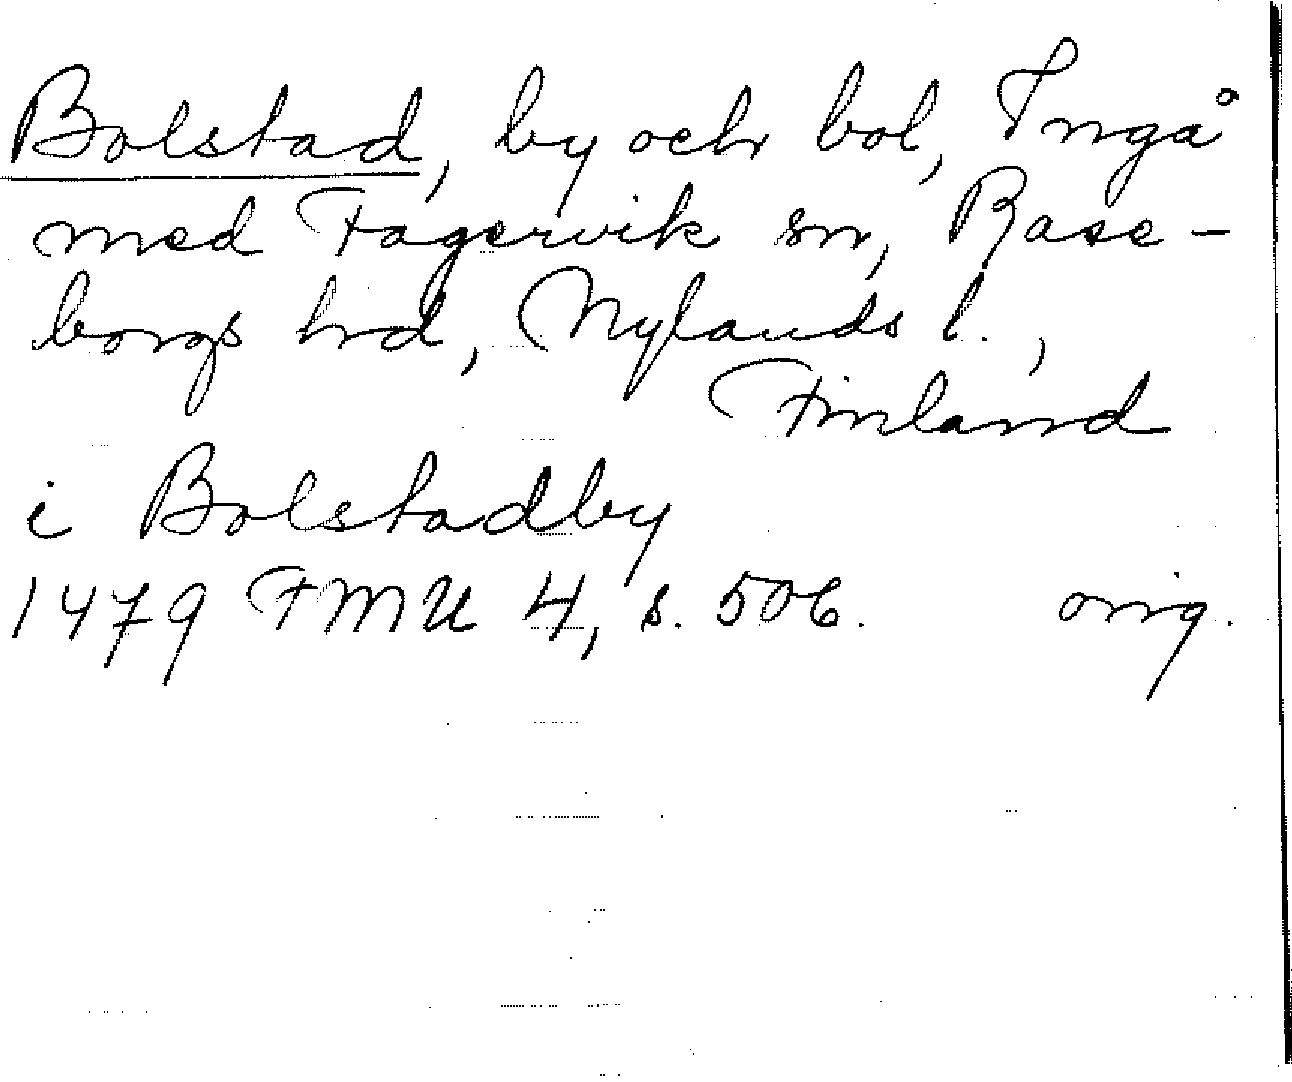 Bolstad, by och bol, Ingå
med Fagervik sn, Rase-
borgs hrd, Nylands l.,
Finland
i Bolstadby
1479 FMU 4, s. 506. orig.